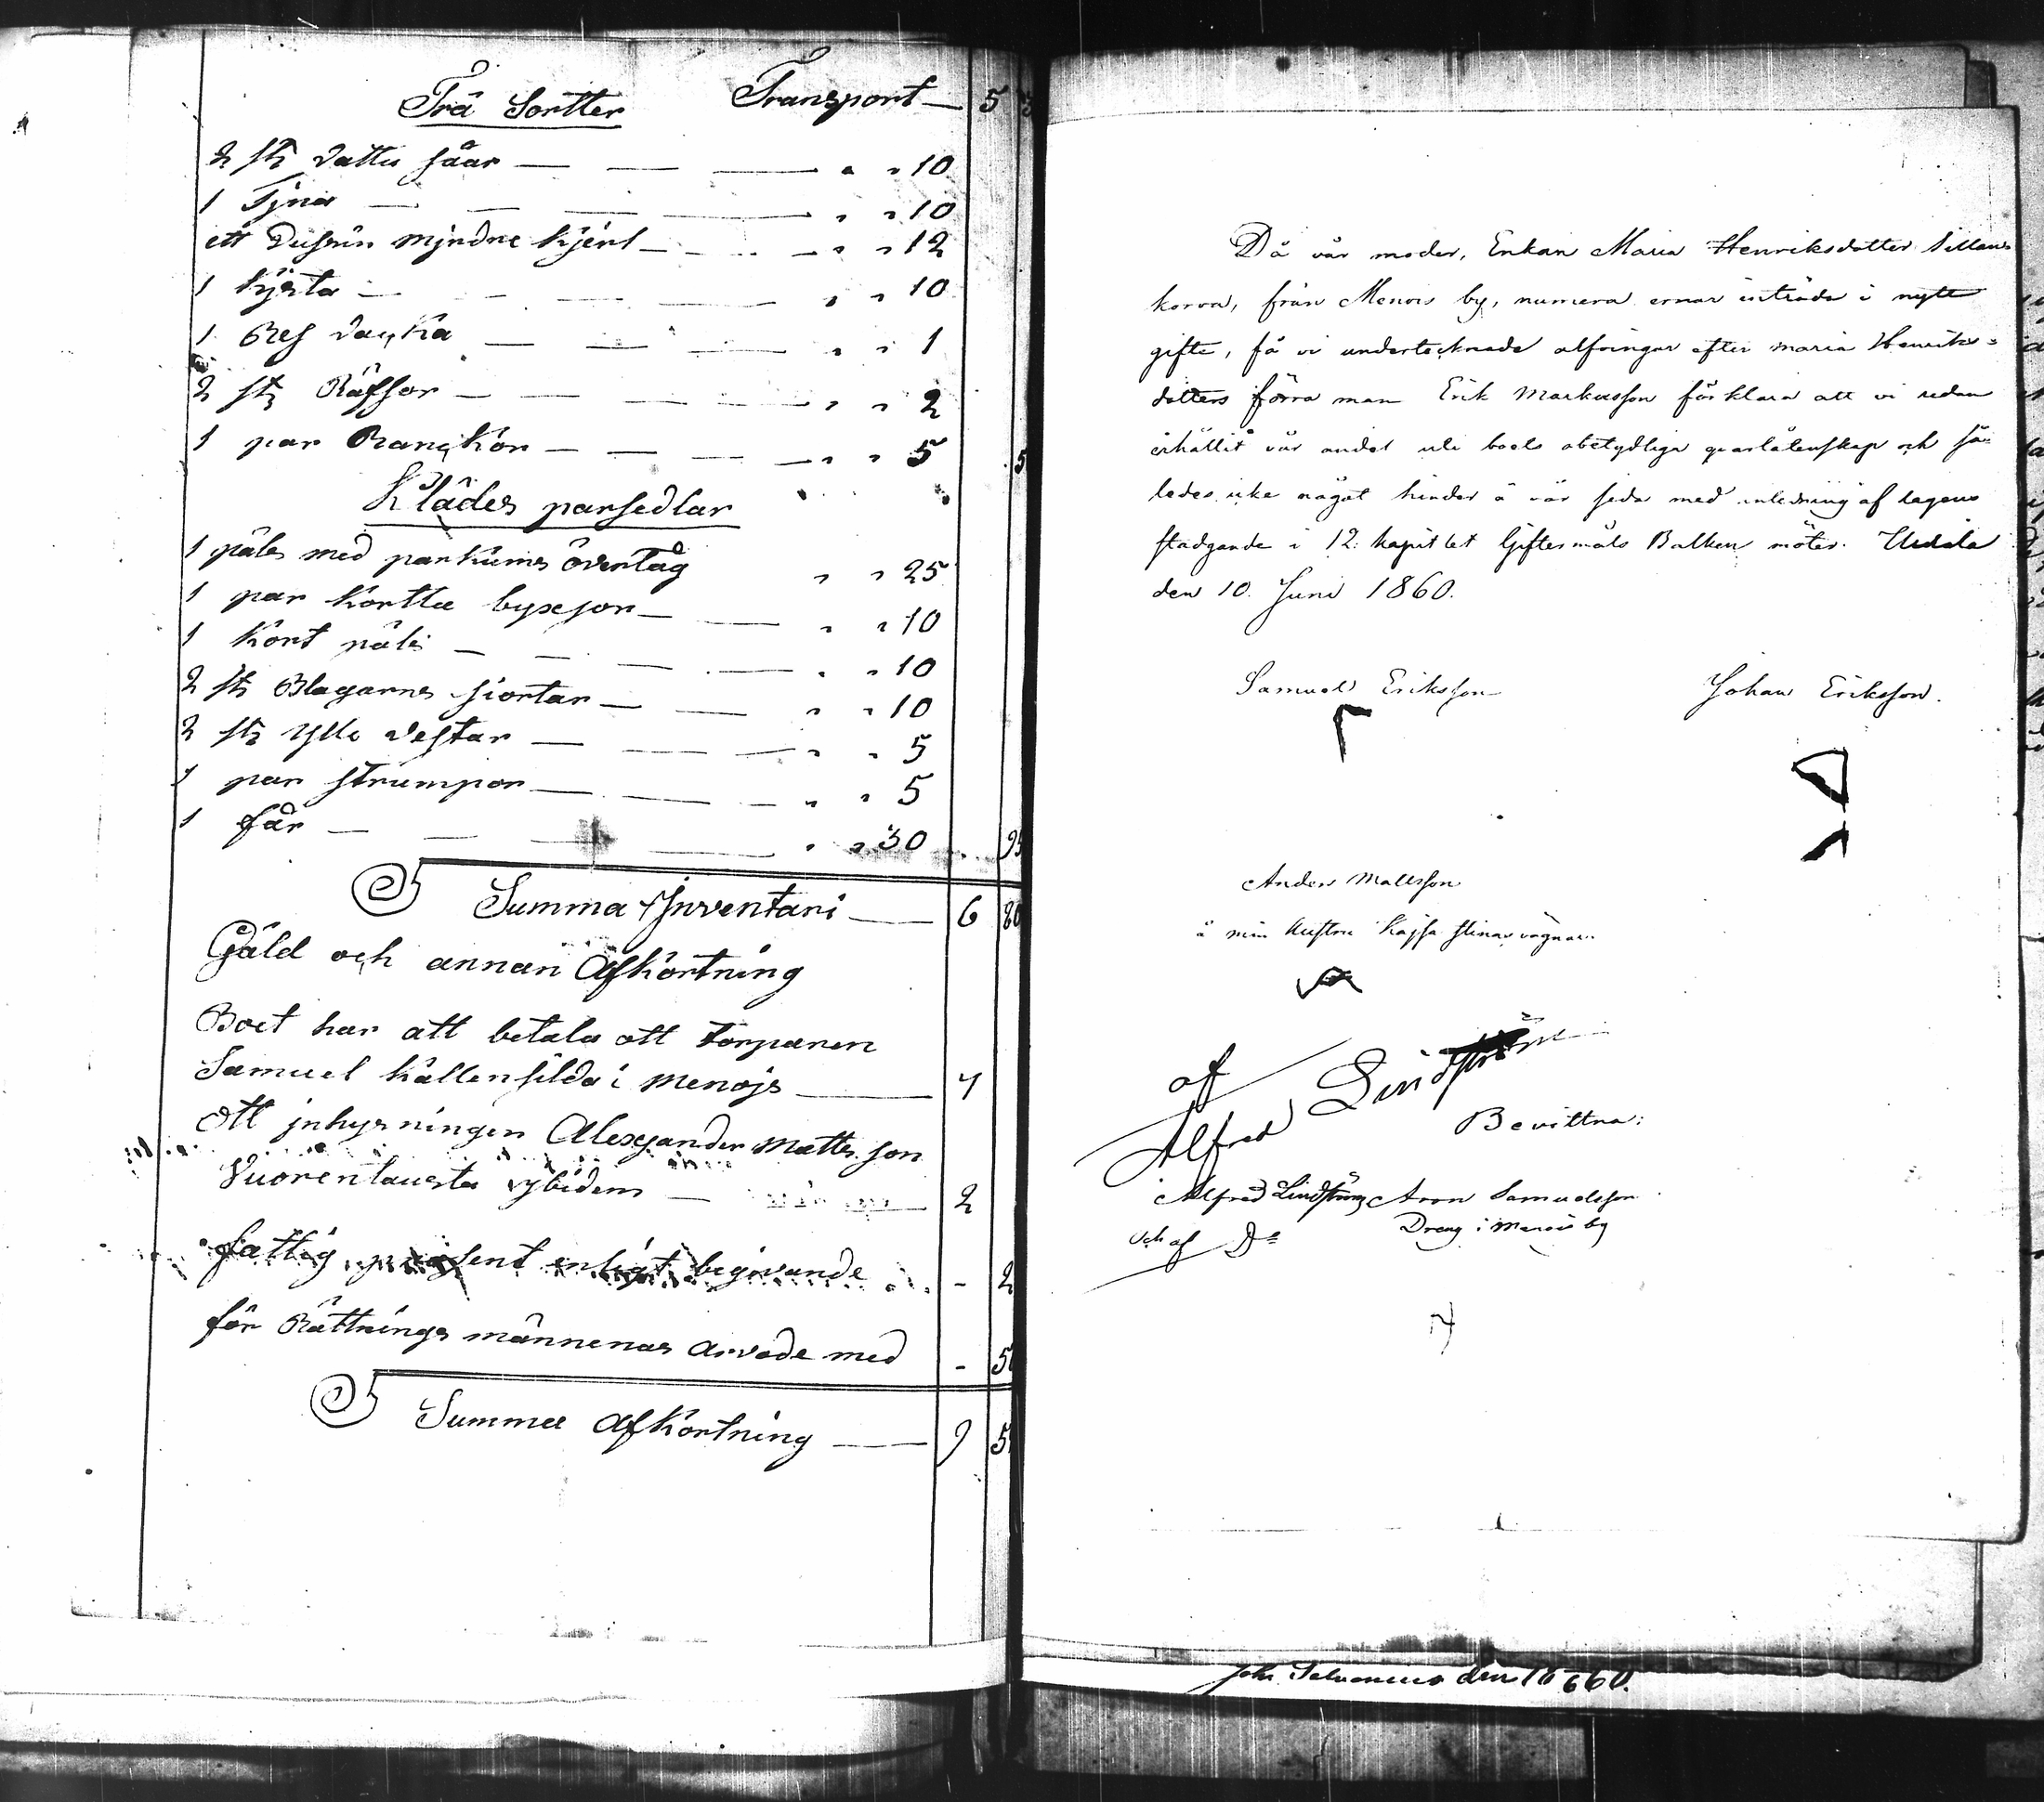 Trä Sortter Transport — 5
2 st; vatten såar — — — " " 10
1 Tjna — — — " " 10
ett Dussin mjndre kjerl — — " " 12
1 kjsta — — — " " 10
1 Res — — — " " 1
2 st; Räfsor — — — " " 2
1 par — — — " " 5 5
Kläder parsedlar
1 päls med parkums övertåg " " 25
1 par kortta byxsor — — " " 10
1 kort päls — — — " " 10
2 st; Blagarns siortar — — " " 10
2 st; ylle vestar — — — " " 5
1 par strumpor — — — " " 5
1 får — — — " " 30
Summa Jnventari — 6 80
Gäld och annan Afkortning
Boet har att betala ått torparen
Samuel källensilda i menojs —
ått jnhysningen Alexsander Matts son
Vuorentausta jbidem — 2
fattig prosent enligt begivande - 2
för Rättnings männenas arvode med - 5
Summa Afkortning — 9 5
Då vår moder, Enkan Maria Henriksdotter Sillan-
korva, från Menois by, numera ernar inträda i nytt
gifte, få vi undertecknade alfvingar efter maria Henriks=
dotters förra man Erik Markusson förklara att vi redan
erhållit vår andel uti boets obetydliga qvarlåtenskap och så-
ledes icke något hinder å vår sida med anledning af lagens
stadgande i 12. kapitlet Giftermåls Balken möter. Urdiala
den 10. Juni 1860.
Samuel Eriksson Johan Eriksson.
Anders Mattsson
å min hustru Kajsa Stinas vägnar.
af
Alfred Lindström
Bevittna:
Alfred Lindström Aron Samuelsson
och af Do Dreng i Menois by
den 16 6 60.